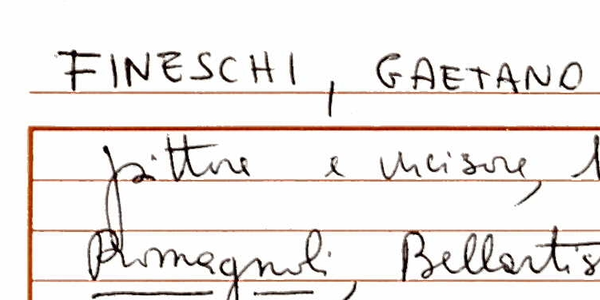 FINESCHI, GAETANO
pittore e incisore,
Romagnoli, Bellartis